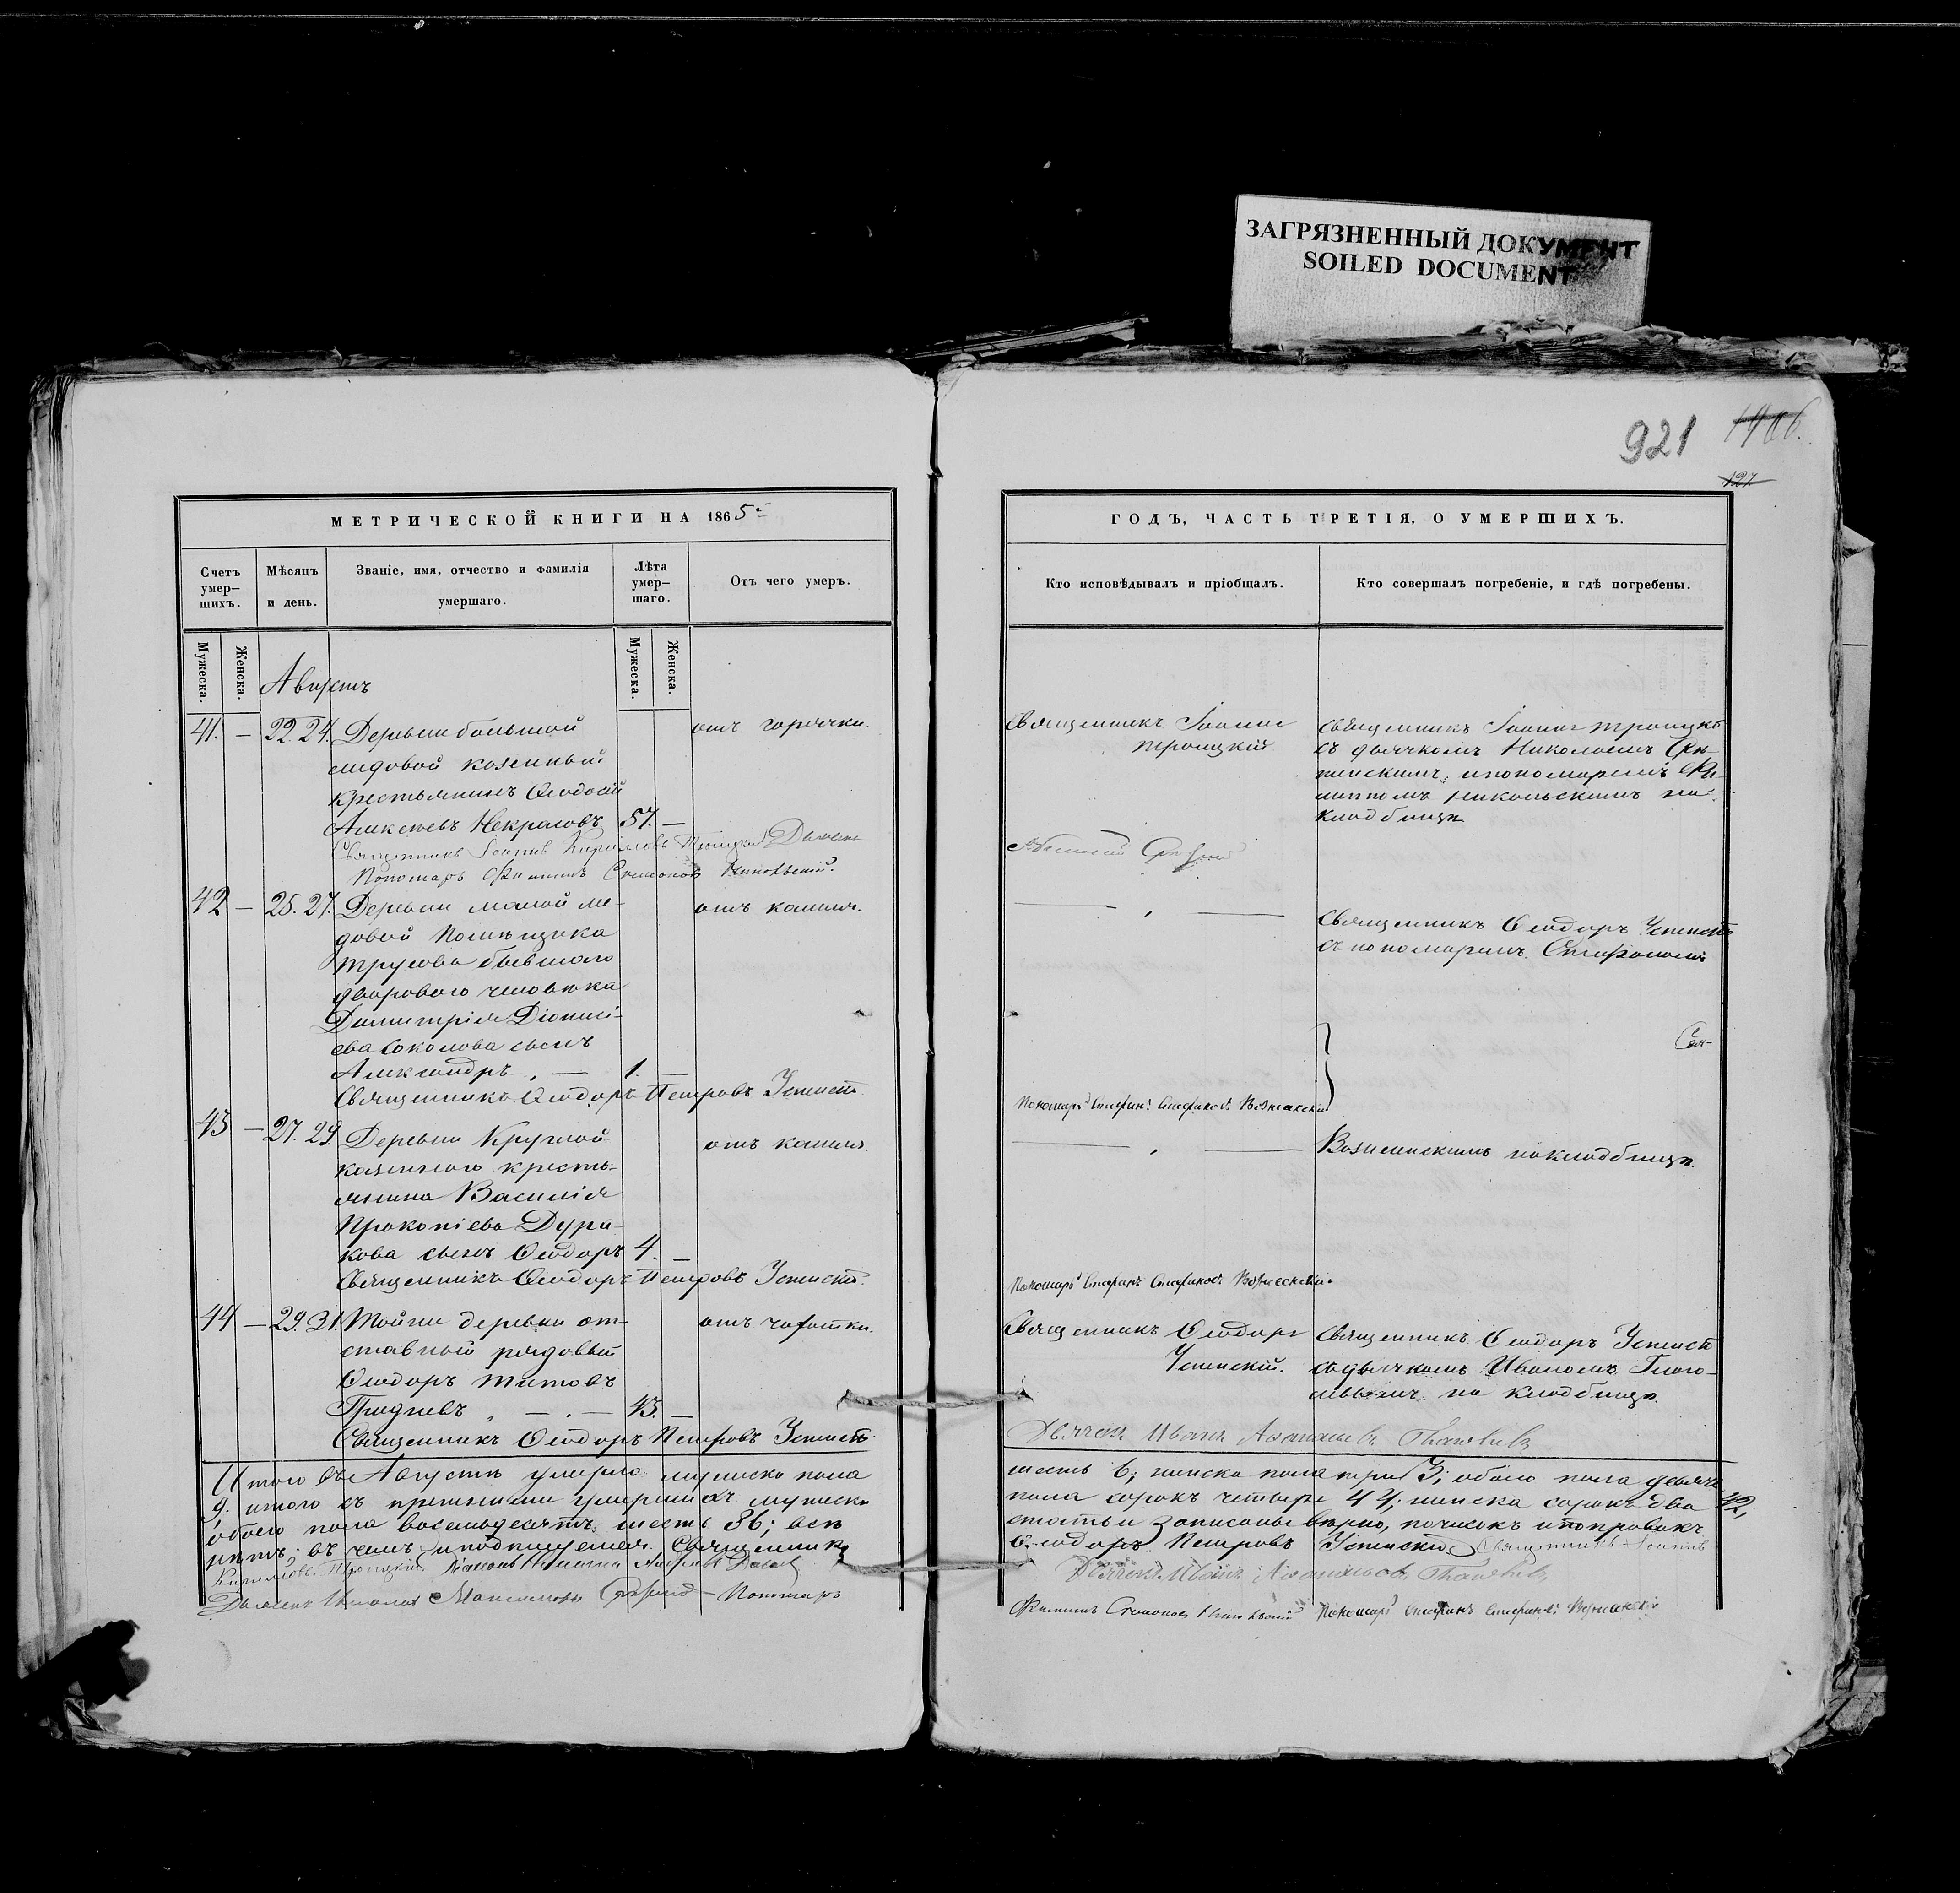 ЗАГРЯЗНЕННЫЙ ДОКУМЕНТ
SOILED DOCUMENT
921
127
МЕТРИЧЕСКОЙ КНИГИ НА 1865й
Счетъ умер-шихъ.
Мѣсяцъ и день.
Званіе, имя, отчество и фамилія умершаго.
Лѣта умер-шаго.
Отъ чего умеръ.
Мужеска.
Женска.
Мужеска.
Женска.
Августъ
41. — 22. 24. Деревни большой
медовой казенный
крестьянинъ Ѳеодосій
Алексѣевъ Некрасовъ 57. —
отъ горячки.
Священникъ Іоаннъ Кириловъ Троицкій Дьячекъ
Пономарь Филиппъ Симеоновъ Никольскій.
42 — 25. 27. Деревни малой ме-
довой Помѣщика
Трусова бывшаго
двороваго человѣка
Димитрія Діонисі-
ева Соколова сынъ
Александръ, — 1. —
отъ кашля.
Священникъ Ѳеодоръ Петровъ Успенскій
43 — 27. 29. Деревни Круглой
казеннаго кресть-
янина Василія
Прокопіева Дура-
кова сынъ Ѳеодоръ 4. —
отъ кашля.
Священникъ Ѳеодоръ Петровъ Успенскій.
44 — 29. 31. Тойже деревни от-
ставной рядовый
Ѳеодоръ Титовъ
Гридневъ, — . — 43. —
отъ чахотки.
Священникъ Ѳеодоръ Петровъ Успенскій.
Итого въ Августѣ умерло мужеска пола
9. итого съ прежними умершихъ мужеска
обоего пола восемьдесятъ шесть 86; всѣ
нѣтъ; въ чемъ и подписуемся. Священникъ
Кириловъ Троицкій
Дьячекъ Николай Максимовъ Пономарь
ГОДЪ, ЧАСТЬ ТРЕТІЯ, О УМЕРШИХЪ.
Кто исповѣдывалъ и пріобщалъ.
Кто совершалъ погребеніе, и гдѣ погребены.
Священникъ Іоаннъ
Троицкій
Священникъ Іоаннъ Троицкій
съ дьячкомъ Николаемъ
и пономаремъ Фи-
липпомъ Никольскимъ на
кладбищѣ
— , —
Священникъ Ѳеодоръ Успенскій
съ пономаремъ Стефаномъ
Пономарь Стефанъ Стефановъ Вознесенскій
— , —
Вознесенскимъ на кладбищѣ.
Пономарь Стефанъ Стефановъ Вознесенскій.
Священникъ Ѳеодоръ
Успенскій.
Священникъ Ѳеодоръ Успенскій
съ дьячкомъ Иваномъ Глаго-
левымъ на кладбищѣ.
Дьячекъ Иванъ Аѳанасьевъ Глаголевъ
шесть 6; женска пола три 3; обоего пола девять
пола сорокъ четыре 44; женска сорокъ два 42,
статьи записаны вѣрно, почисокъ и поправокъ
Ѳеодоръ Петровъ Успенскій Священникъ Іоаннъ
Дьячекъ Иванъ Аѳанасьевъ Глаголевъ
Филиппъ Симеоновъ Никольскій Пономарь Стефанъ Стефановъ Вознесенскій